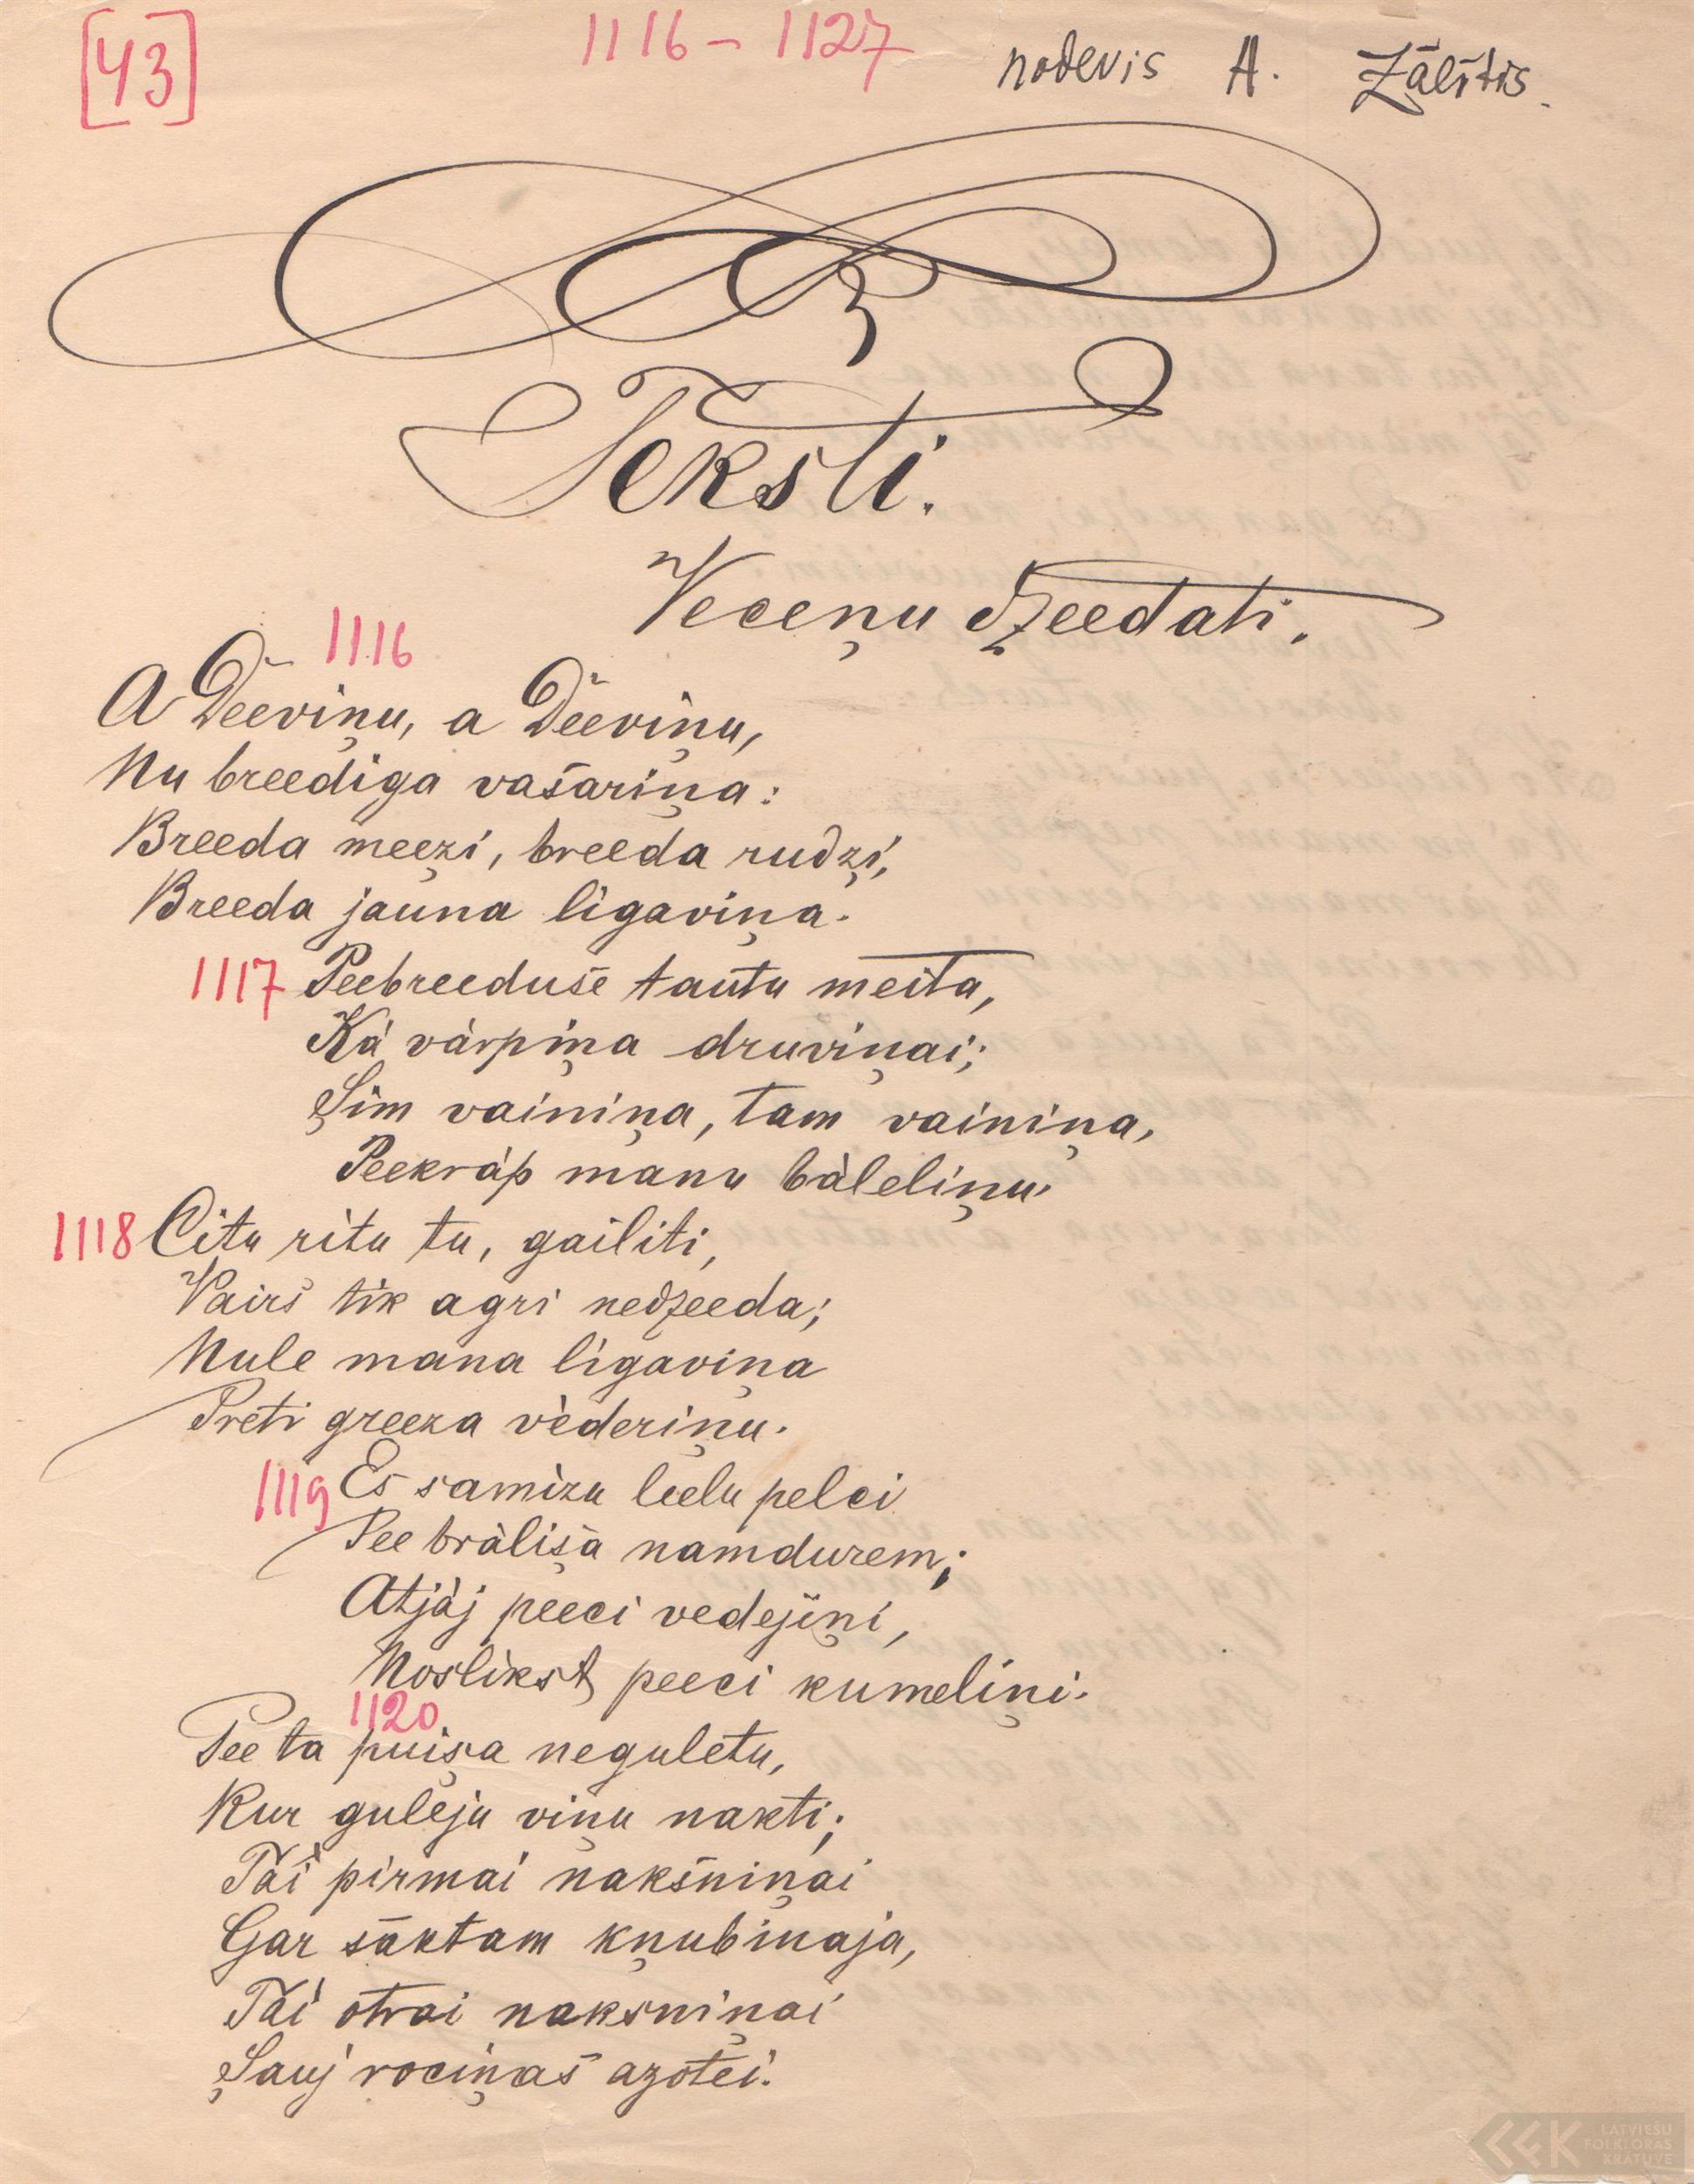 [43]
1116 – 1127
nodevis A. Zālītis.
Teksti.
Veceņu dzeedati.
1116
A Deeviņu, a Deeviņu,
Nu breediga vašariņa:
Breeda meeži, breeda rudzi,
Breeda jauna ligaviņa.
1117 Peebreeduše tautu meita,
Kà vàrpiņa druviņai;
Şim vainiņa, tam vainiņa,
Peekràp manu bàleliņu.
1118 Citu ritu tu, gailiti,
Vairs tik agri nedzeeda;
Nule mana ligaviņa
Preti greeza vèderiņu.
1119 Es samizu leelu pelci
Pee bràlişa namdurem;
Atjàj peeci vedejiņi,
Noslikst peeci kumeliņi.
1120
Pee ta puişa neguletu,
Kur guleju viņu nakti;
Tai pirmai naksniņai
Gar sāktam kņubinaja,
Tai otrai naksniņai
Şauj rociņas azotei.
LATVIEŠU
FOLKLORAS
KRĀTUVE